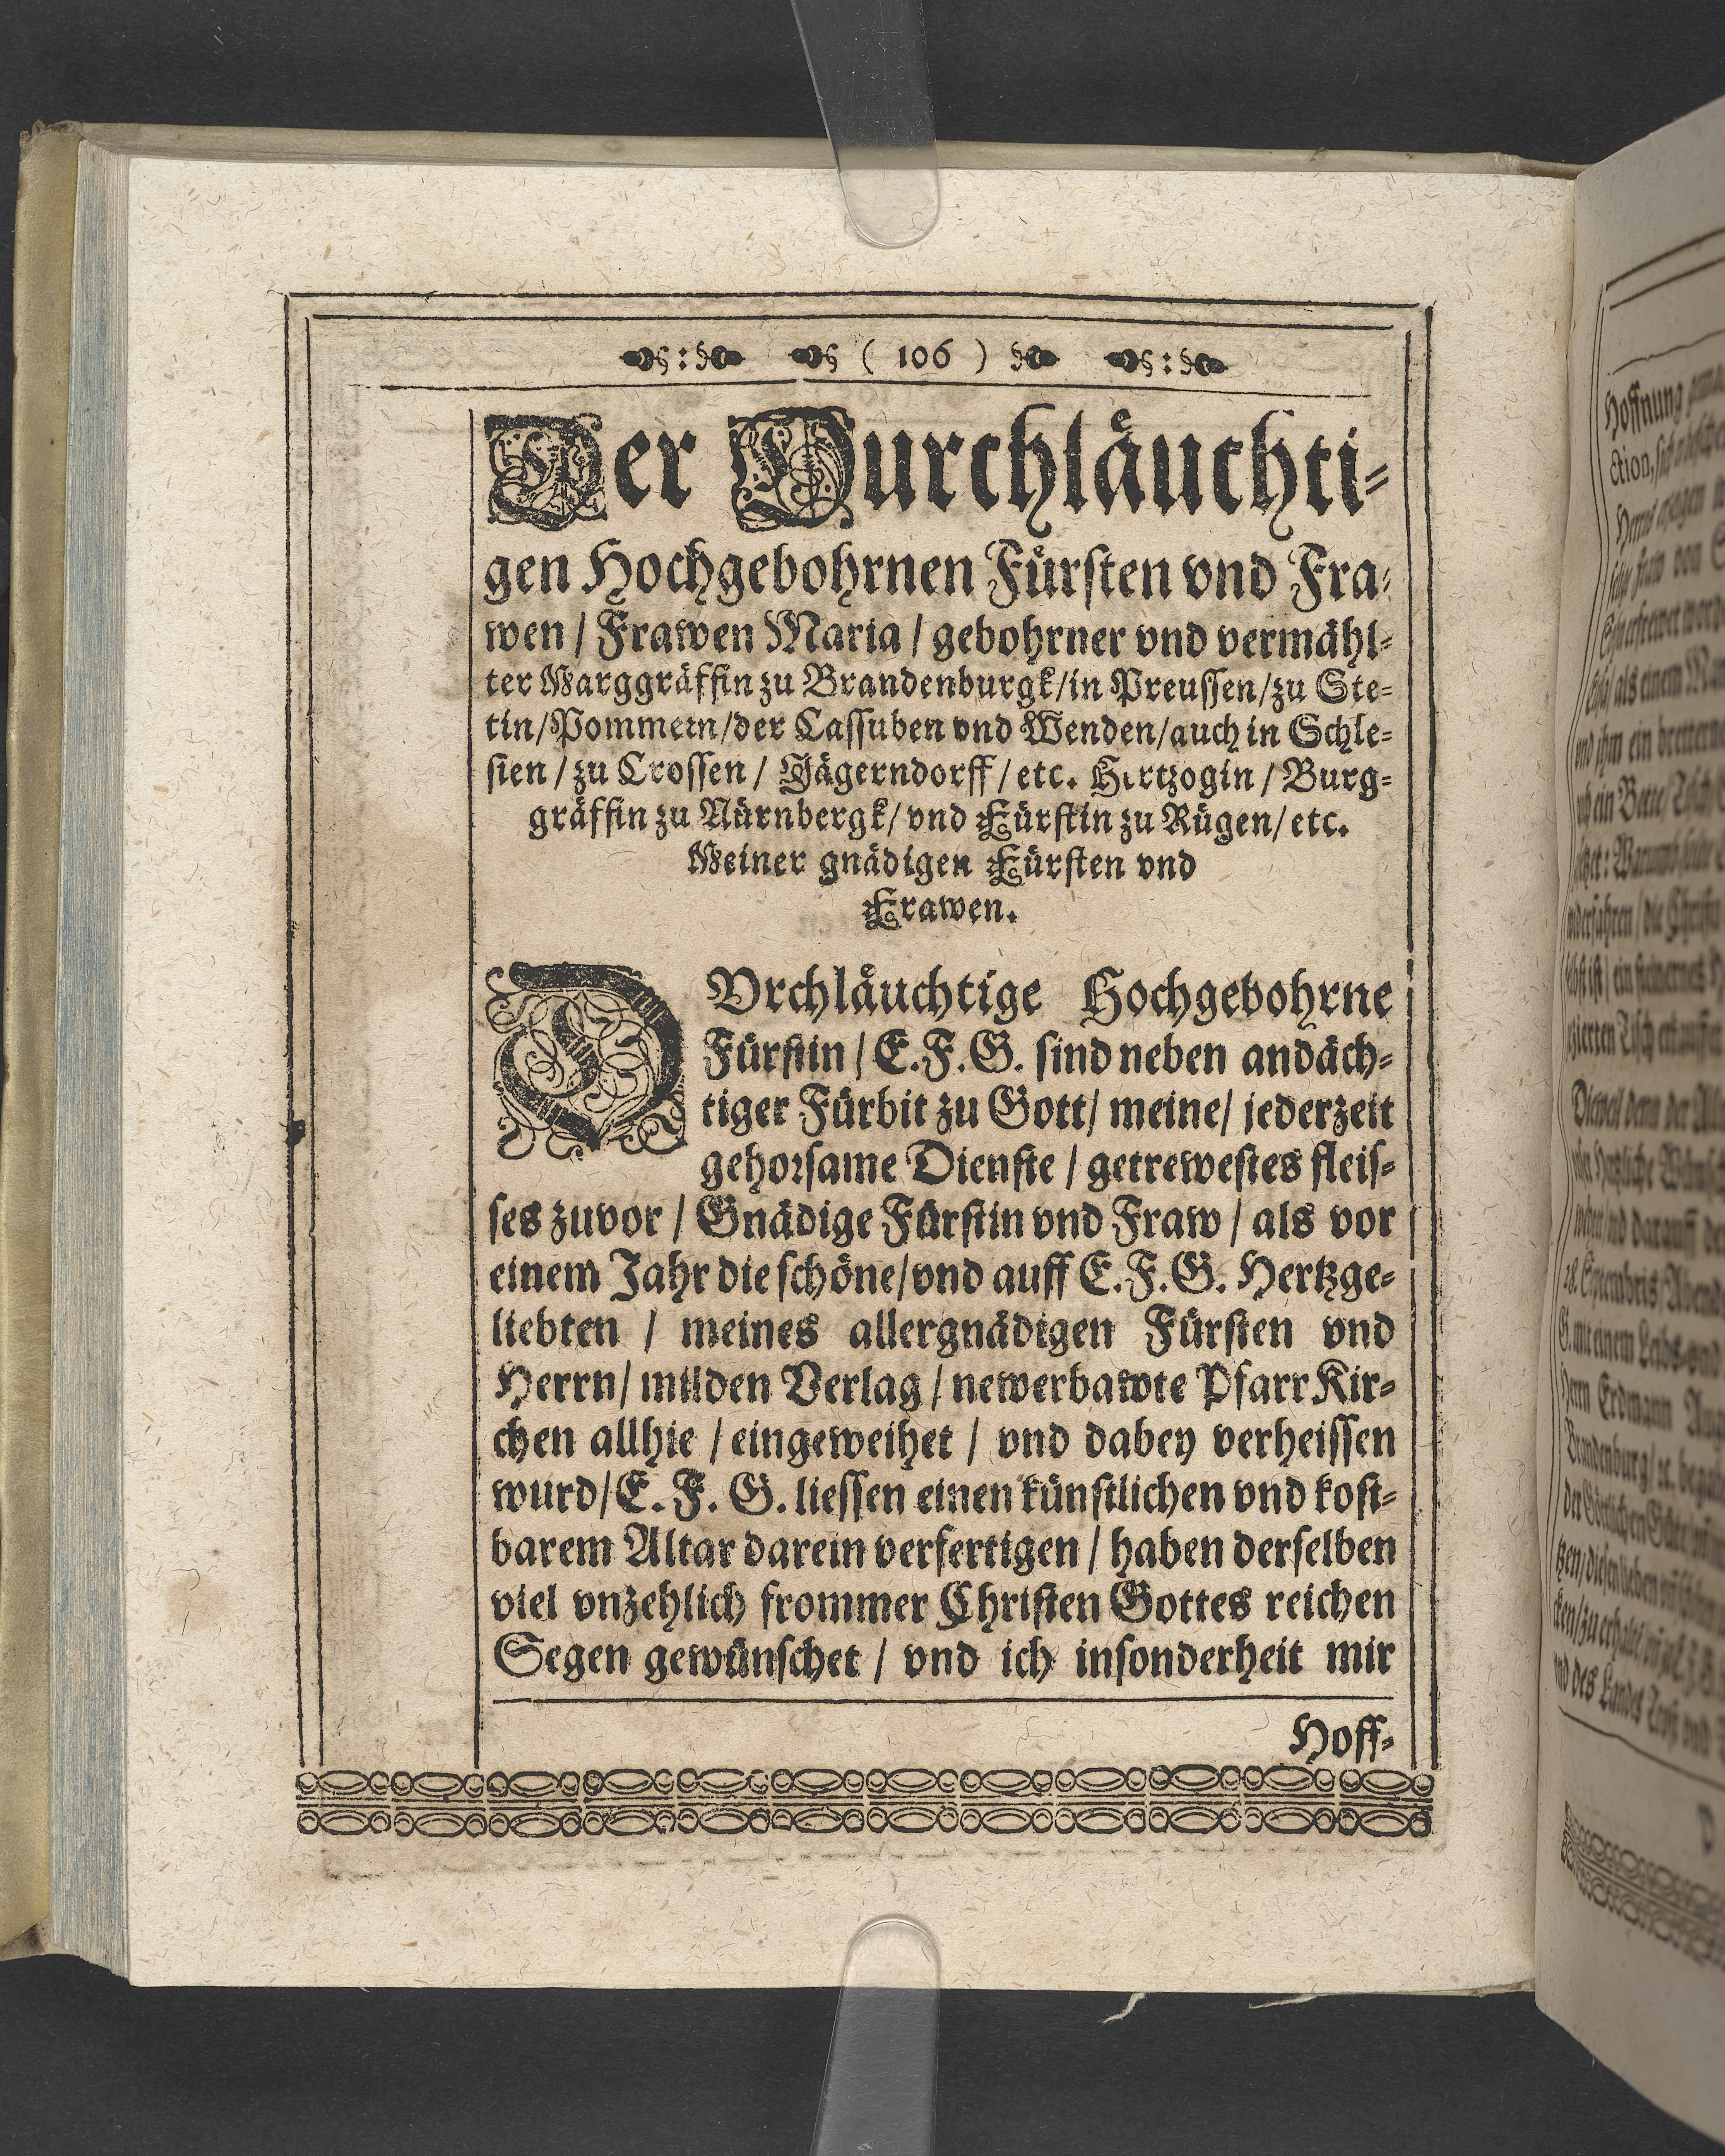 ( 106 )
Der Durchläuchti-
gen Hochgebohrnen Fürsten vnd Fra-
wen / Frawen Maria / gebohrner vnd vermähl-
ter Marggräffin zu Brandenburgk/in Preussen/zu Ste-
tin/Pommern/der Cassuben vnd Wenden/auch in Schle-
sien / zu Crossen / Jägerndorff / etc. Hertzogin / Burg-
gräffin zu Nürnbergk/ vnd Fürstin zu Rügen/ etc.
Meiner gnädigen Fürsten vnd
Frawen.
DVrchläuchtige Hochgebohrne
Fürstin / E.F.G. sind neben andäch-
tiger Fürbit zu Gott/ meine/ jederzeit
gehorsame Dienste / getrewestes fleis-
ses zuvor / Gnädige Fürstin vnd Fraw / als vor
einem Jahr die schöne/vnd auff E.F.G. Hertzge-
liebten / meines allergnädigen Fürsten vnd
Herrn/ milden Verlag / newerbawte Pfarr Kir-
chen allhie / eingeweihet / vnd dabey verheissen
wurd/E. F. G. liessen einen künstlichen vnd kost-
barem Altar darein verfertigen / haben derselben
viel vnzehlich frommer Christen Gottes reichen
Segen gewünschet / vnd ich insonderheit mir
Hoff-
Hoffnung
ction,
Herrn Erdmann
Brandenburg/